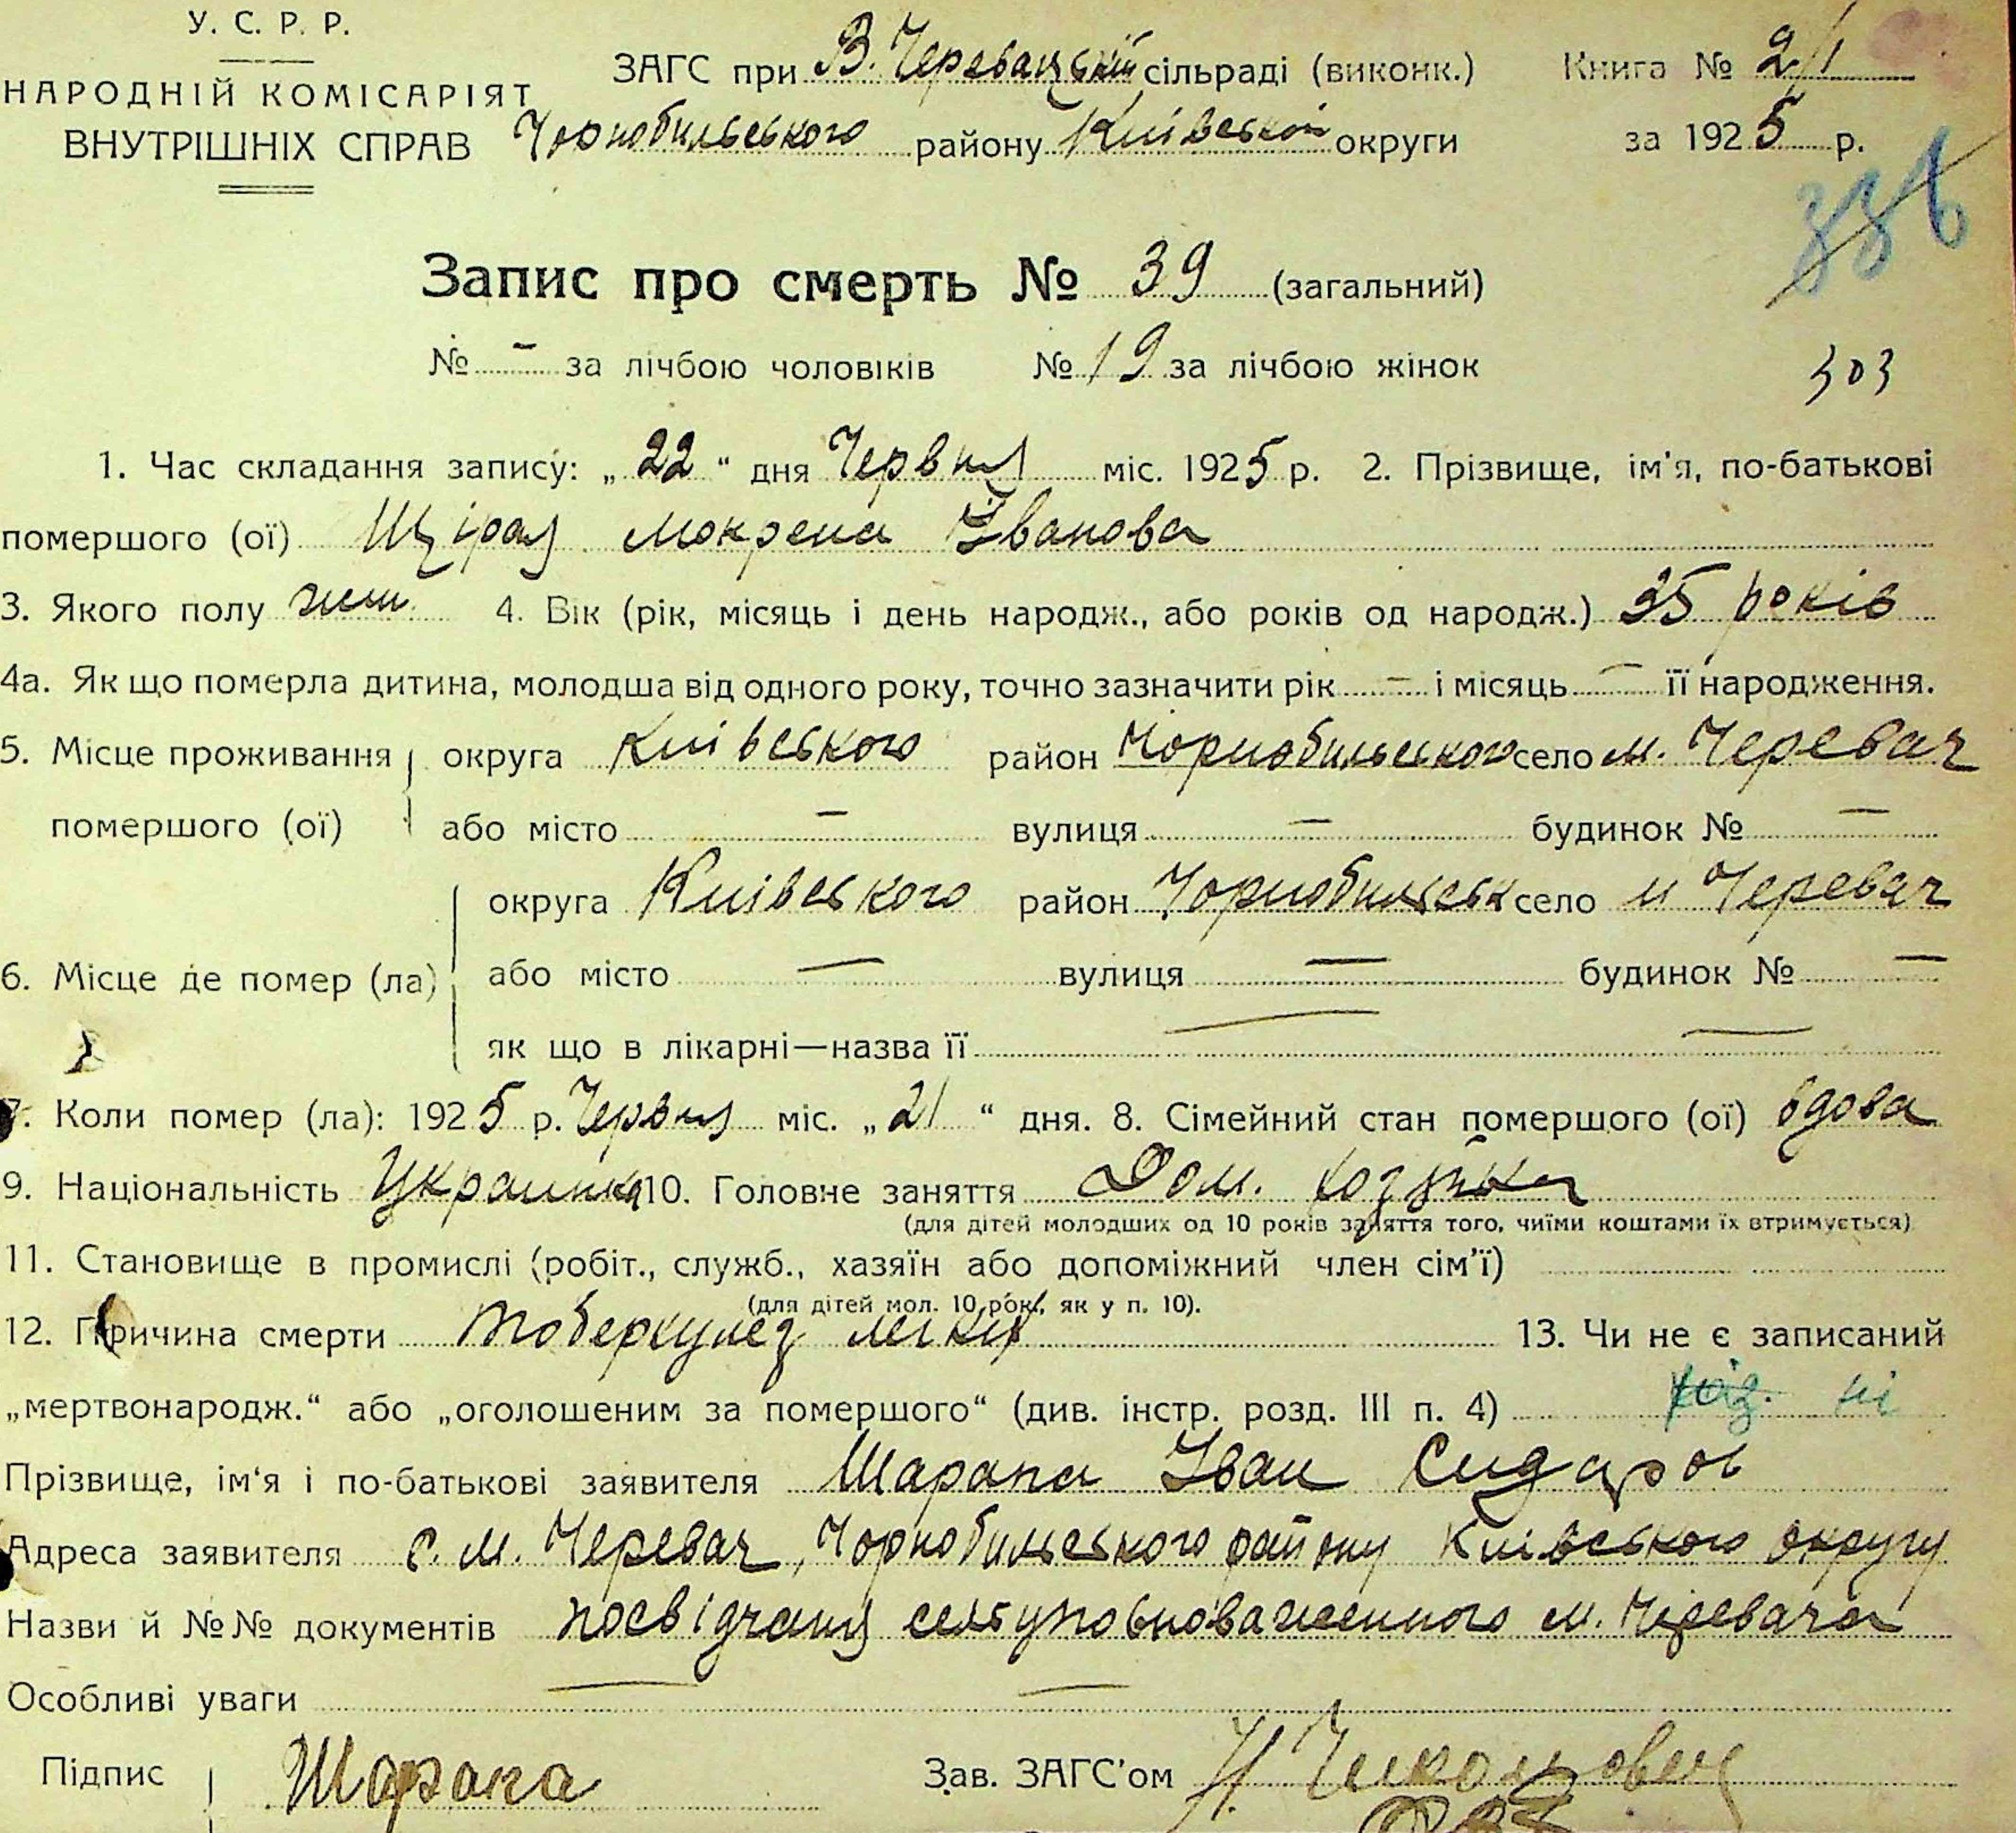 У. С. Р. Р.
НАРОДНІЙ КОМІСАРІЯТ
ВНУТРІШНІХ СПРАВ
ЗАГС при В. Черевацькій сільраді (виконк.) Книга № 2/1
Чорнобильського району Київськой округи за 1925 р.
336
Запис про смерть № 39 (загальний)
№ - за лічбою чоловіків № 19 за лічбою жінок
303
1. Час складання запису: „22“ дня Червня міс. 1925 р. 2. Прізвище, ім'я, по-батькові
помершого (ої) Щірая Мокрена Іванова
3. Якого полу жін. 4. Вік (рік, місяць і день народж., або років од народж.) 35 років
4а. Як що померла дитина, молодша від одного року, точно зазначити рік — і місяць — її народження.
5. Місце проживання округа Київського район Чорнобильського село м. Черевач
помершого (ої) або місто — вулиця — будинок № —
округа Київського район Чорнобильськ село м Черевач
6. Місце де помер (ла) або місто — вулиця — будинок № —
як що в лікарні—назва її — —
7. Коли помер (ла): 1925 р. Червня міс. „21“ дня. 8. Сімейний стан помершого (ої) вдова
9. Національність Украинка 10. Головне заняття Дом. хозяйка
(для дітей молодших од 10 років заняття того, чиїми коштами їх втримується)
11. Становище в промислі (робіт., служб., хазяїн або допоміжний член сім'ї)
(для дітей мол. 10 рок., як у п. 10).
12. Причина смерти тоберкулез легких 13. Чи не є записаний
„мертвонародж.“ або „оголошеним за помершого“ (див. інстр. розд. III п. 4) ні
Прізвище, ім'я і по-батькові заявителя Шарапа Іван Сидаров
Адреса заявителя с. М. Черевач, Чорнобильського району Київського округу
Назви й №№ документів посвідчання сельуповноваженного м. Черевача
Особливі уваги — —
Підпис Шарапа Зав. ЗАГС'ом Н.